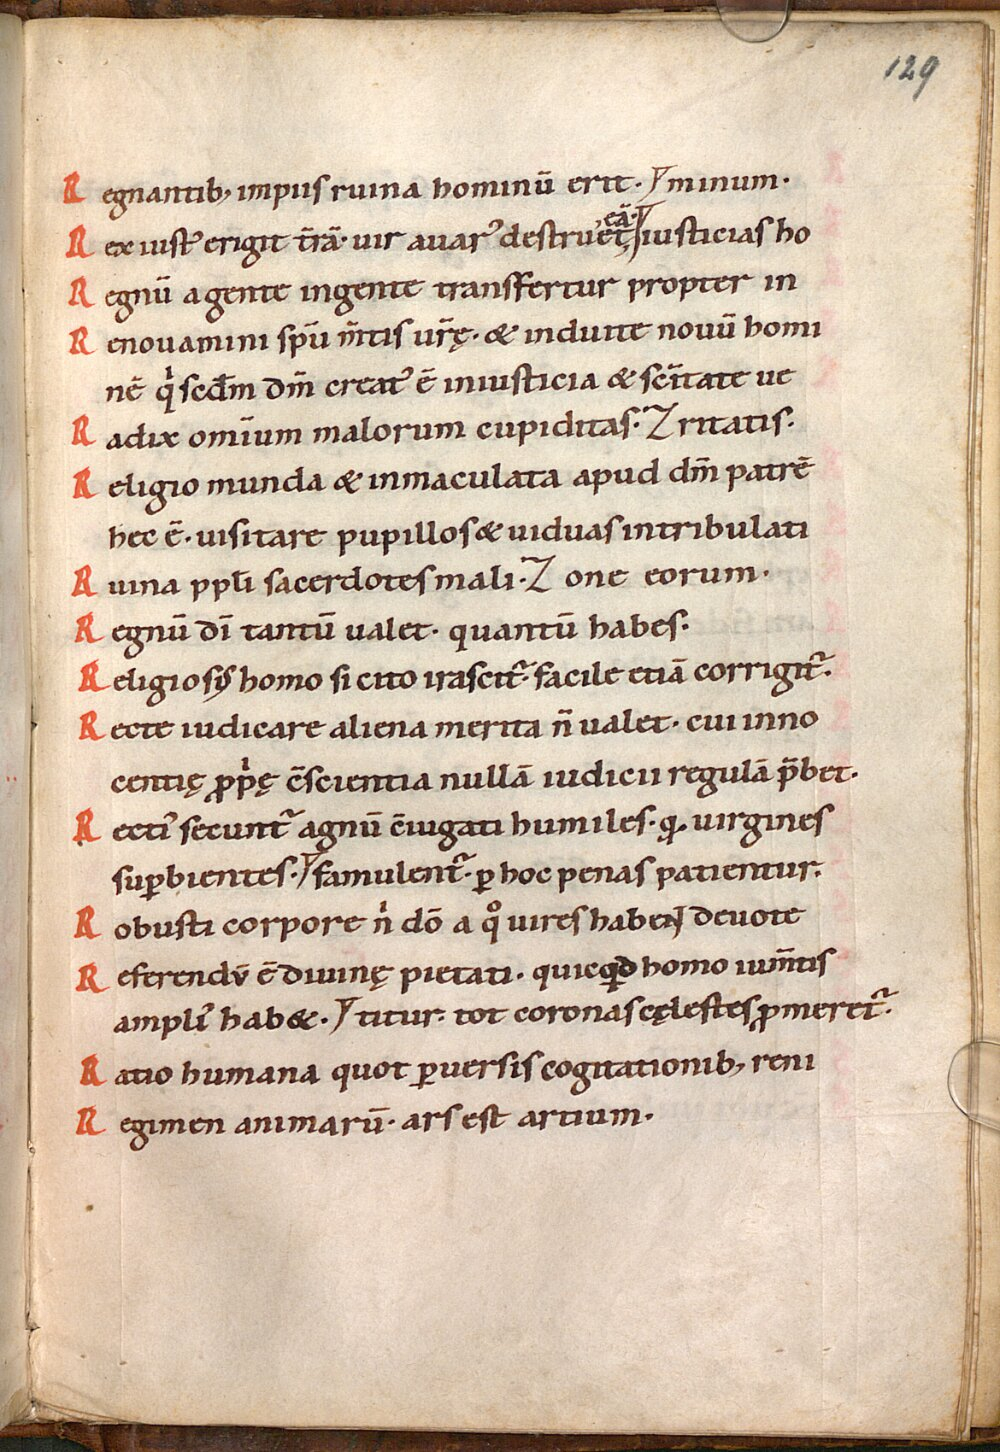 129
Regnantib; impiis ruina hominū erit. minum.
Rex iustꝰ erigit t̄rā. uir auarꝰ destruet eā. iusticias ho
Regnū a gente in gente transfertur propter in
Renouamini sp̄u m̄tis ur̄ę. & induite nouū homi
nē q̇ scd̄m dm̄ creatꝰ ē in iusticia & sc̄itate ue
Radix omīum malorum cupiditas. ritatis.
Religio munda & inmaculata apud dm̄ patrē
hec ē. uisitare pupillos & uiduas in tribulati
Ruina ppl̄i sacerdotes mali. one eorum.
Regnū dī tantū ualet. quantū habes.
Religiosꝰ homo si cito irascit᷑. facile etiā corrigit᷑.
Recte iudicare aliena merita n̄ ualet. cui inno
centię ꝓpͥę c̄scientia nullā iudicii regulā p̄bet.
Rectiꝰ secunt᷑ agnū c̄iugati humiles. q̄ uirgines
suꝑbientes. famulent᷑. ꝑ hoc penas patientur.
Robusti corpore nͥ dō a qͦ uires habent deuote
Referendū ē diuinę pietati. quicqd homo ium̄tis
ampliꝰ hab&. titur. tot coronas cęlestes ꝓmeret᷑.
Ratio humana quot ꝑuersis cogitationib; reni
Regimen animarū. ars est artium.